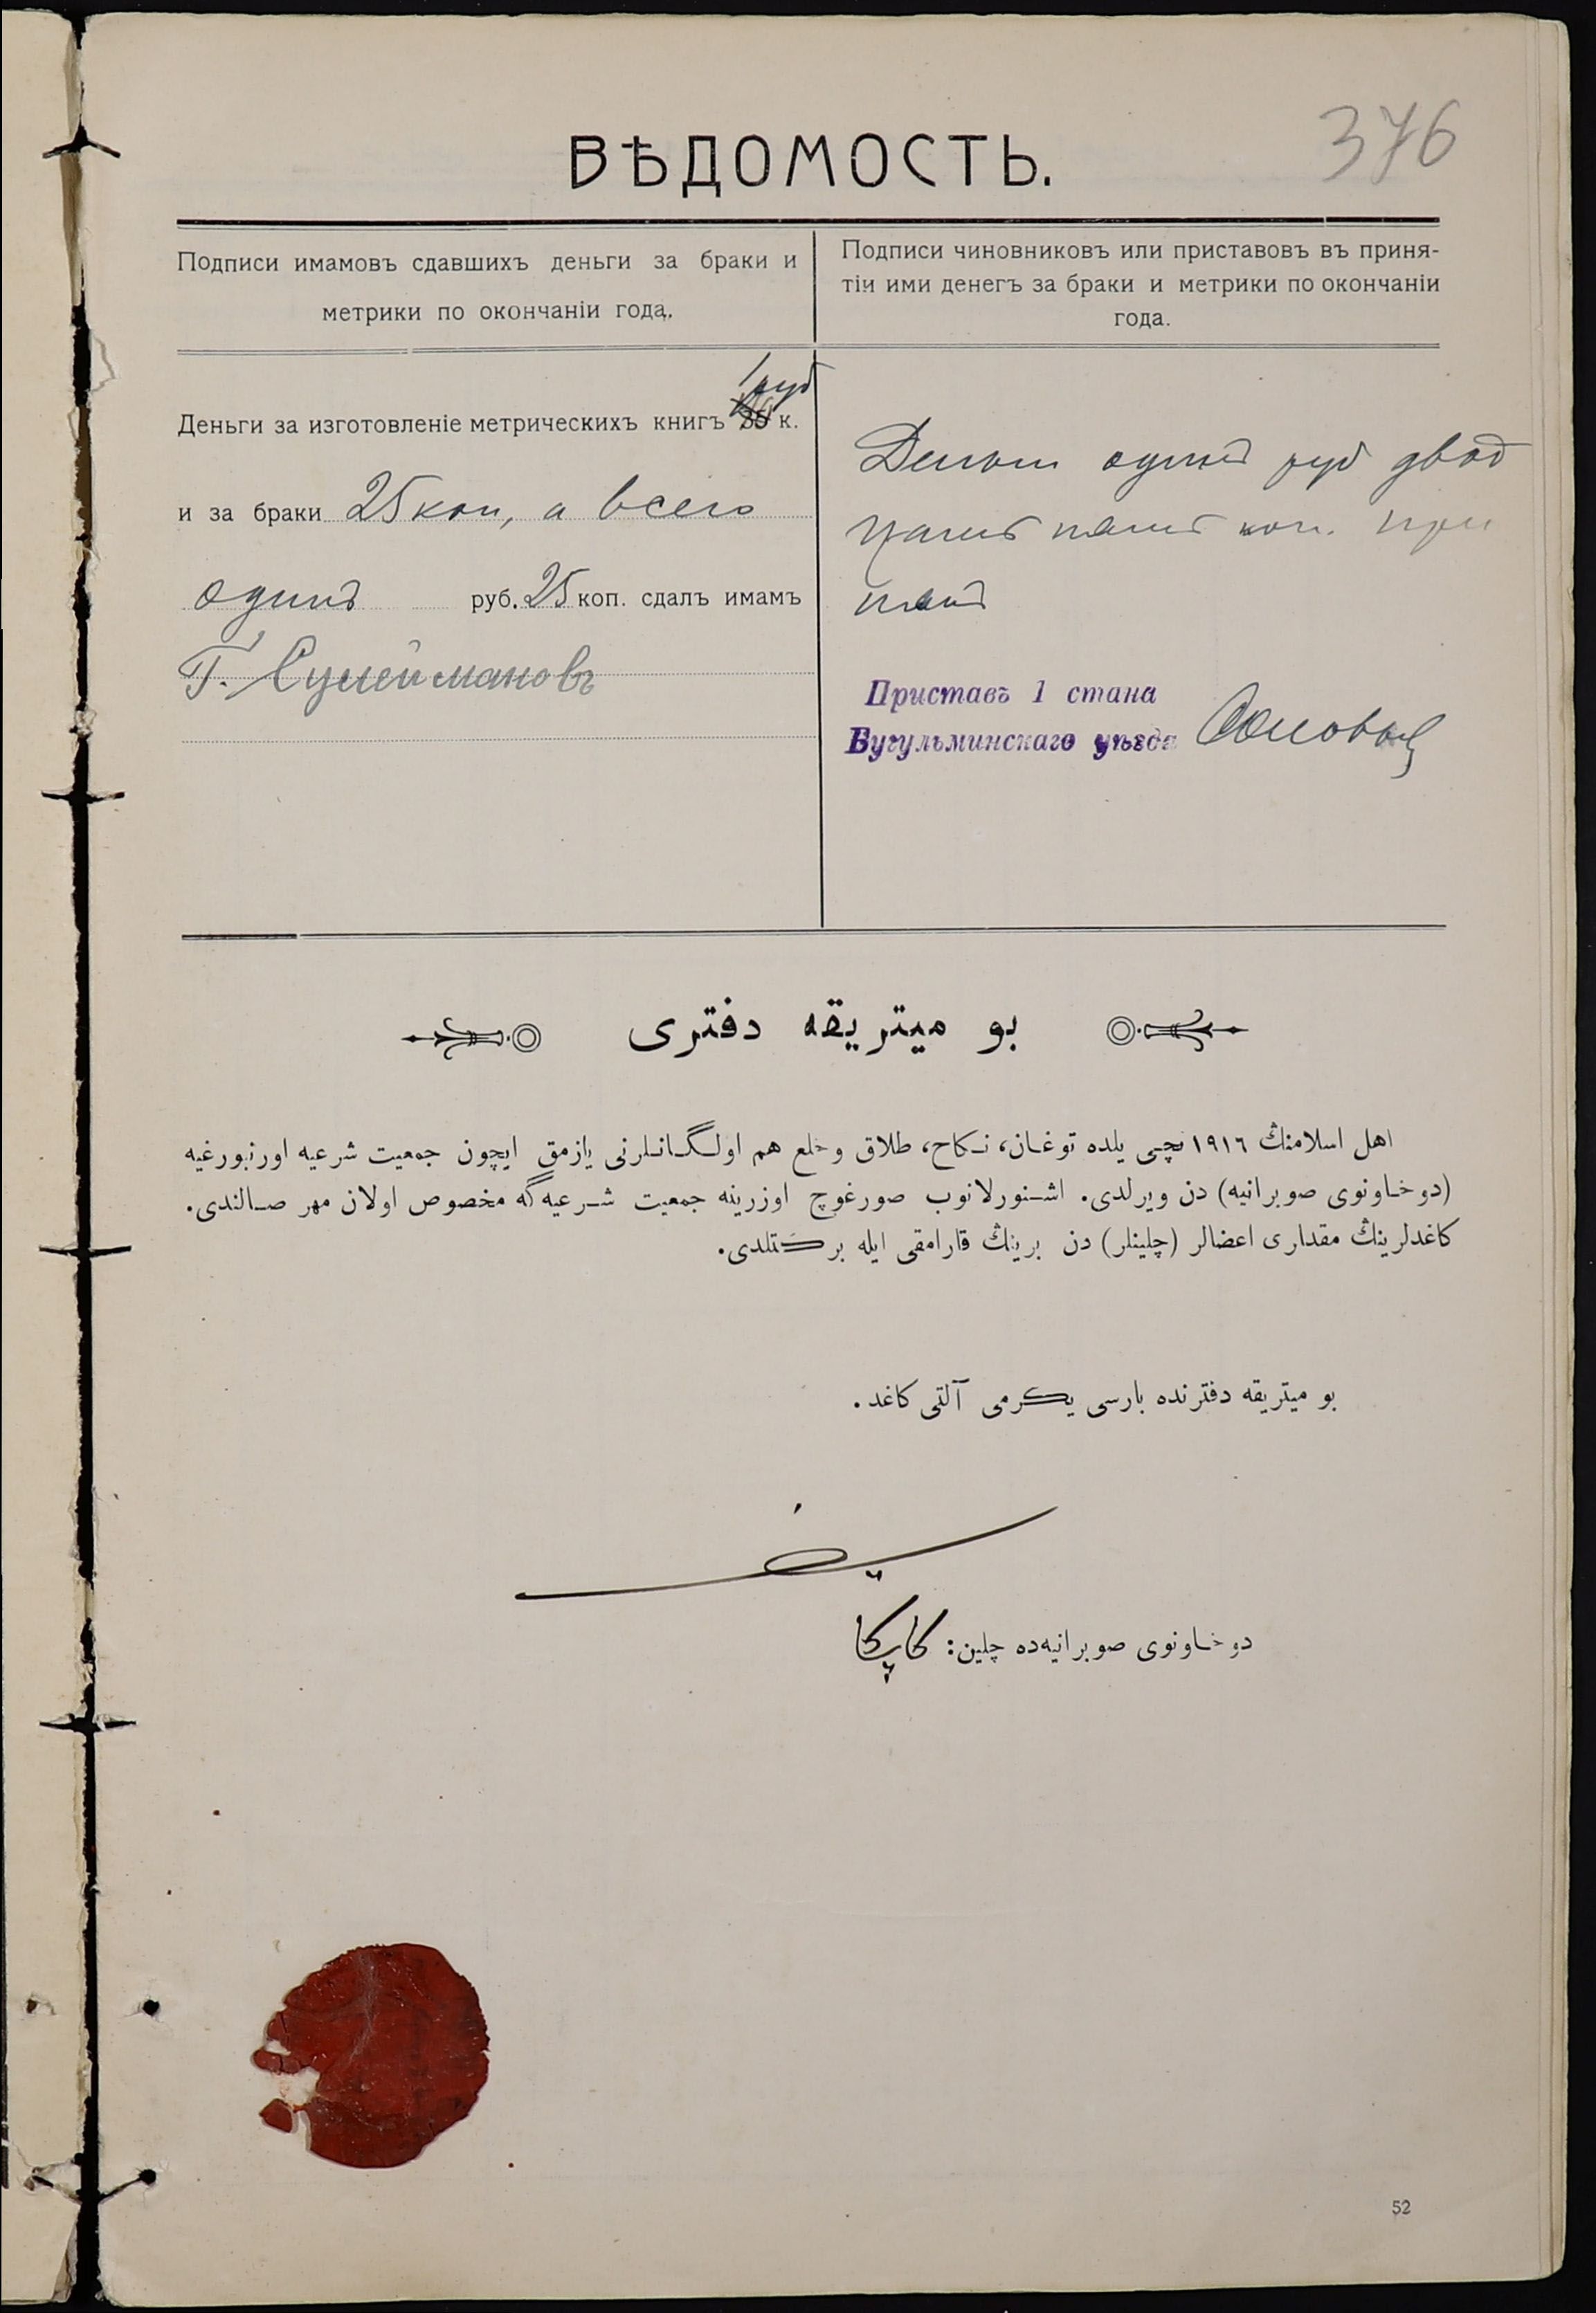 376
ВѢДОМОСТЬ.
Подписи имамовъ сдавшихъ деньги за браки и
метрики по окончаніи года.
Подписи чиновниковъ или приставовъ въ приня-
тіи ими денегъ за браки и метрики по окончаніи
года.
1 руб
Деньги за изготовленіе метрическихъ книгъ к.
и за браки 25 коп, а всего
одинъ руб. 25 коп. сдалъ имамъ
Г. Сулеймановъ
Деньги одинъ руб двад
цать пять коп. при
нялъ
Приставъ 1 стана
Бугульминскаго уѣзда
بو ميتريقه دفترى
اهل اسلامنڭ ١٩١٦ نچى يلده توغان، نكاح، طلاق وخلع هم اولگانلرنى يازمق ايچون جمعيت شرعيه اورنبورغيه
(دوخاونوى صوبرانيه) دن ويرلدى. اشنورلانوب صورغوچ اوزرينه جمعيت شرعيه گه مخصوص اولان مهر صالندى.
كاغدلرينڭ مقدارى اعضالر (چلينلر) دن برينڭ قارامقى ايله بركتلدى.
بو ميتريقه دفترنده بارسى يكرمى آلتى كاغد.
دوخاونوى صوبرانيه‌ده چلين: كاپكا
52